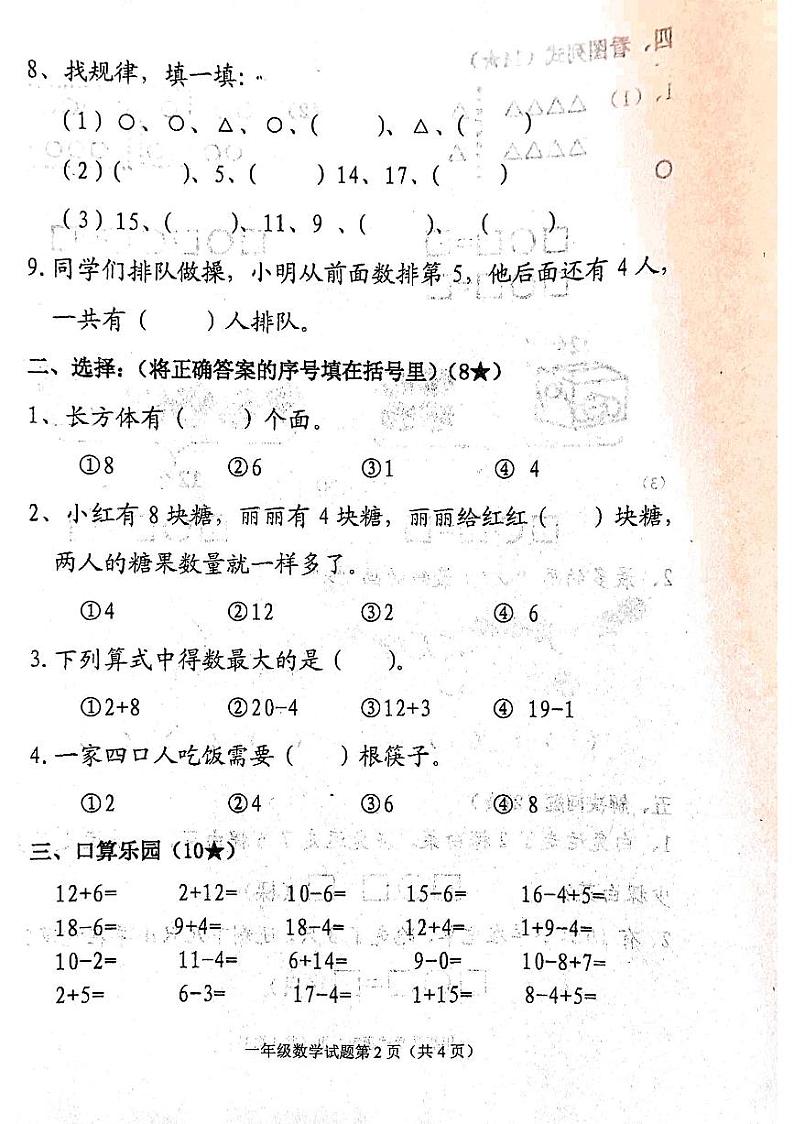 8、找规律，填一填：
（1）○、○、△、○、（  ）、△、（  ）
（2）（  ）、5、（  ）14、17、（  ）
（3）15、（  ）、11、9、（  ）、（  ）
9.同学们排队做操，小明从前面数排第5，他后面还有4人，
一共有（  ）人排队。
二、选择：（将正确答案的序号填在括号里）（8★）
1、长方体有（  ）个面。
①8 ②6 ③1 ④ 4
2、小红有8块糖，丽丽有4块糖，丽丽给红红（  ）块糖，
两人的糖果数量就一样多了。
①4 ②12 ③2 ④ 6
3.下列算式中得数最大的是（  ）。
①2+8 ②20-4 ③12+3 ④ 19-1
4.一家四口人吃饭需要（  ）根筷子。
①2 ②4 ③6 ④ 8
三、口算乐园（10★）
12+6= 2+12= 10-6= 15-6= 16-4+5=
18-6= 9+4= 18-4= 12+4= 1+9-4=
10-2= 11-4= 6+14= 9-0= 10-8+7=
2+5= 6-3= 17-4= 1+15= 8-4+5=
一年级数学试题第2页（共4页）